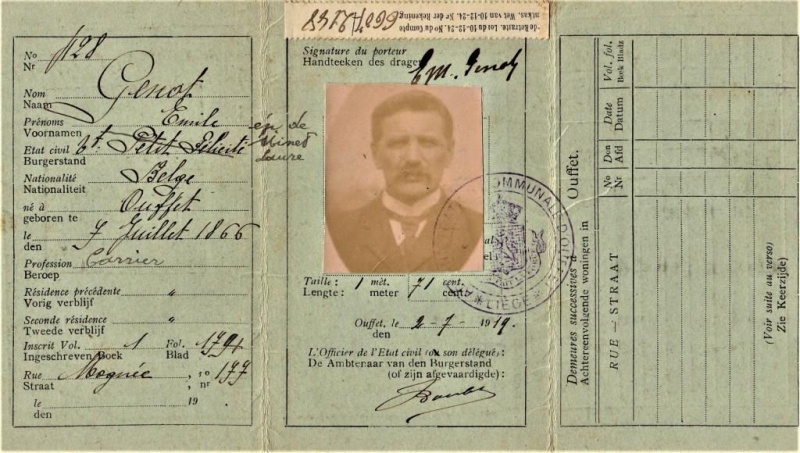 No 1128
Nr
Nom Genot
Naam
Prénoms Emile
Voornamen
Etat civil Et. Petit Félicité
Burgerstand
ép. de
Ninet
Laure
Nationalité Belge
Nationaliteit
né à Ouffet
geboren te
le 7 Juillet 1866
den
Profession Carrier
Beroep
Résidence précédente "
Vorig verblijf
Seconde résidence "
Tweede verblijf
Inscrit Vol. 1 Fol. 179
Ingeschreven Boek Blad
Rue Mognée no 177
Straat nr
le 19
den
de Retraite. Loi du 10-12-24. No du Compte
Wet van 10-12-24. Nr der Rekening
Signature du porteur
Handteeken des drager
Em. Genot
COMMUNALE D'OUFFET
LIEGE
Taille : 1 mèt. 71 cent.
Lengte : meter cent.
Ouffet, le 2-7-1919.
den
L'Officier de l'Etat civil (ou son délégué) :
De Ambtenaar van den Burgerstand
(of zijn afgevaardigde) :
Demeures successives à
Achtereenvolgende woningen in
Ouffet.
RUE — STRAAT
No Nr
Don Afd
Date Datum
Vol. fol. Boek Bladz
(Voir suite au verso)
Zie Keerzijde)